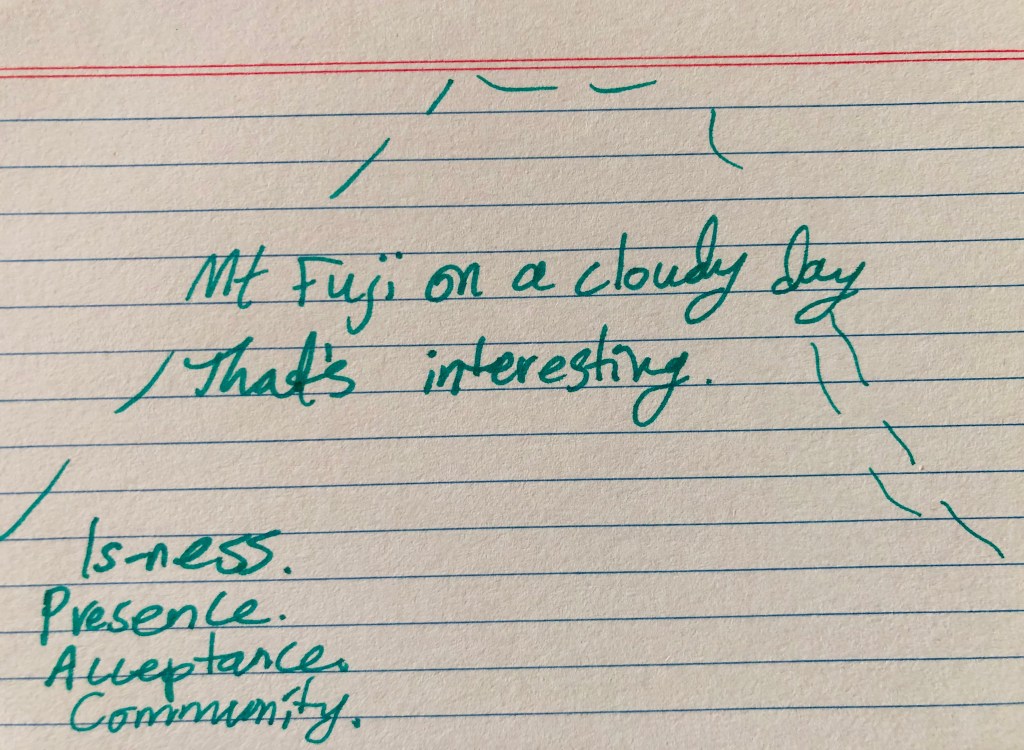 Mt Fuji on a cloudy day
That's interesting.
Is-ness.
Presence.
Acceptance.
Community.